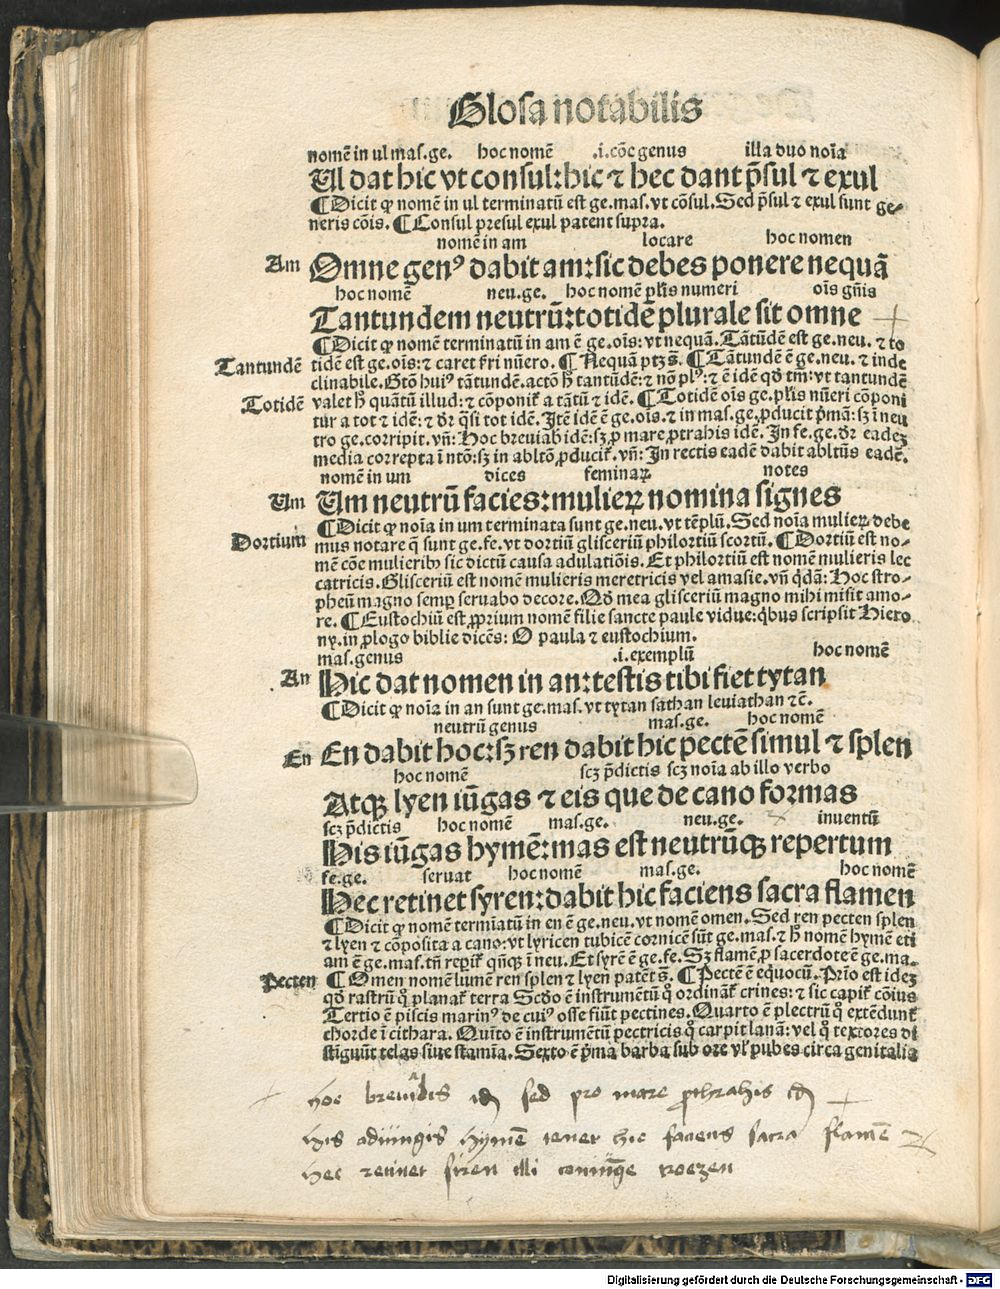 Glosa notabilis
nomē in ul mas.ge. hoc nomē .i.cōe genus illa duo noīa
Ul dat hic vt consul: hic ⁊ hec dant p̄sul ⁊ exul
¶Dicit ꝙ nomē in ul terminatū est ge.mas. vt cōsul. Sed p̄sul ⁊ exul sunt ge-
neris cōis. ¶Consul presul exul patent supra.
nomē in am locare hoc nomen
Am Omne genꝰ dabit am: sic debes ponere nequā
hoc nomē neu.ge. hoc nomē pl̄is numeri oīs gn̄is
Tantundem neutrū: totidē plurale sit omne
¶Dicit ꝙ nomē terminatū in am ē ge.oīs: vt nequā. Tātūdē est ge.neu. ⁊ to
Tantundē tidē est ge.oīs: ⁊ caret nūero. ¶Nequā ptꝫ s̄. ¶Tātundē ē ge.neu. ⁊ inde
clinabile. tātundē. tantūdē: ⁊ nō ⁊ ē idē qd̄ tm̄: vt tantundē
Totidē valet quātū illud: ⁊ cōponit̄ a tātū ⁊ idē. ¶Totidē oīs ge. pl̄is nūeri cōponi
tur a tot ⁊ idē: ⁊ dr̄ q̄si tot idē. Itē idē ē ge.oīs. ⁊ in mas.ge. ꝓducit p̄mā: sꝫ ī neu
tro ge. corripit. vn̄: Hoc breuiab idē: sꝫ ꝓ mare ꝓtrahis idē. In fe.ge. dr̄ eadeꝫ
media correpta ī nt̄o: sꝫ in abltō ꝓducit̄. vn̄: In rectis eadē dabit abltūs eadē.
nomē in um dices feminaꝝ notes
Um Um neutrū facies: mulieꝝ nomina signes
¶Dicit ꝙ noīa in um terminata sunt ge.neu. vt tēplū. Sed noīa mulieꝝ debe
Dortium mus notare q̄ sunt ge.fe. vt dortiū glisceriū philortiū scortū. ¶Dortiū est no-
mē cōe mulierib; sic dictū causa adulatiōis. Et philortiū est nomē mulieris lec
catricis. Gliscerium est nomē mulieris meretricis vel amasie. vn̄ q̄dā: Hoc stro-
pheū magno semꝑ seruabo decore. Qd̄ mea gliscerium magno mihi misit amo-
re. ¶Eustochiū est ꝓprium nomē filie sancte paule vidue: qb;us scripsit Hiero
ny. in ꝓlogo biblie dicēs: O paula ⁊ eustochium.
mas.genus .i.exemplū hoc nomē
An Hic dat nomen in an: testis tibi fiet tytan
¶Dicit ꝙ noīa in an sunt ge.mas. vt tytan sathan leuiathan ⁊c̄.
neutrū genus mas.ge. hoc nomē
En En dabit hoc: sꝫ ren dabit hic pectē simul ⁊ splen
hoc nomē scꝫ p̄dictis scꝫ noīa ab illo verbo
Atqꝫ lyen iūgas ⁊ eis que de cano formas
scꝫ p̄dictis hoc nomē mas.ge. neu.ge. inuentū
His iūgas hymē: mas est neutrūqꝫ repertum
fe.ge. seruat hoc nomē mas.ge. hoc nomē
Hec retinet syren: dabit hic faciens sacra flamen
¶Dicit ꝙ nomē termiatū in en ē ge.neu. vt nomē omen. Sed ren pecten splen
⁊ lyen ⁊ cōposita a cano: vt lyricen tubicē cornicē sūt ge.mas. ⁊ nomē hymē eti
am ē ge.mas. tn̄ reperit̄ qn̄qꝫ ī neu. Et syrē ē ge.fe. Sꝫ flamē ꝓ sacerdote ē ge.ma.
Pecten ¶Omen nomē lumē ren splen ⁊ lyen patēt s̄. ¶Pectē ē equocū. Prīo est ideꝫ
qd̄ rastrū quo planat̄ terra Scdo ē instrumētū quo ordinat̄ crines: ⁊ sic capit̄ cōius
Tertio ē piscis marinꝰ de cuiꝰ osse fiūt pectines. Quarto ē plectrū quo extēdunt̄
chorde ī cithara. Quīto ē instrumētū pectricis quo carpit lanā: vel quo textores di
stīguūt telas siue stamīa. Sexto ē p̄ma barba sub ore vl' pubes circa genitalia
hoc breuiabis idem sed pro mare prothrahis idem
his adiungis hymē tenet hic faciens sacra flamē
hec retinet siren illi coniūge troezen
Digitalisierung gefördert durch die Deutsche Forschungsgemeinschaft - DFG